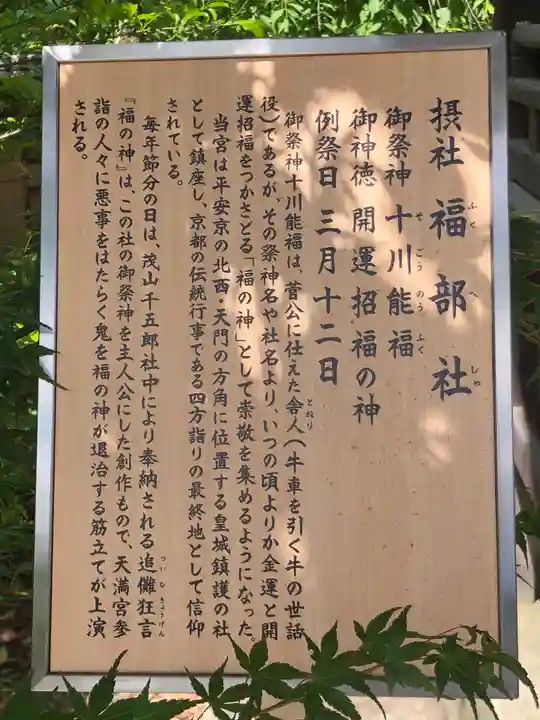 摂社 福部社
ふく べ しゃ
御祭神 十川能福
そ ごう のう ふく
御神徳 開運招福の神
例祭日 三月十二日
御祭神十川能福は、菅公に仕えた舎人(牛車を引く牛の世話
とねり
役)であるが、その祭神名や社名より、いつの頃よりか金運と開
運招福をつかさどる「福の神」として崇敬を集めるようになった。
当宮は平安京の北西・天門の方角に位置する皇城鎮護の社
として鎮座し、京都の伝統行事である四方詣りの最終地として信仰
されている。
毎年節分の日は、茂山千五郎社中により奉納される追儺狂言
ついな きょうげん
『福の神』は、この社の御祭神を主人公にした創作もので、天満宮参
詣の人々に悪事をはたらく鬼を福の神が退治する筋立てが上演
される。